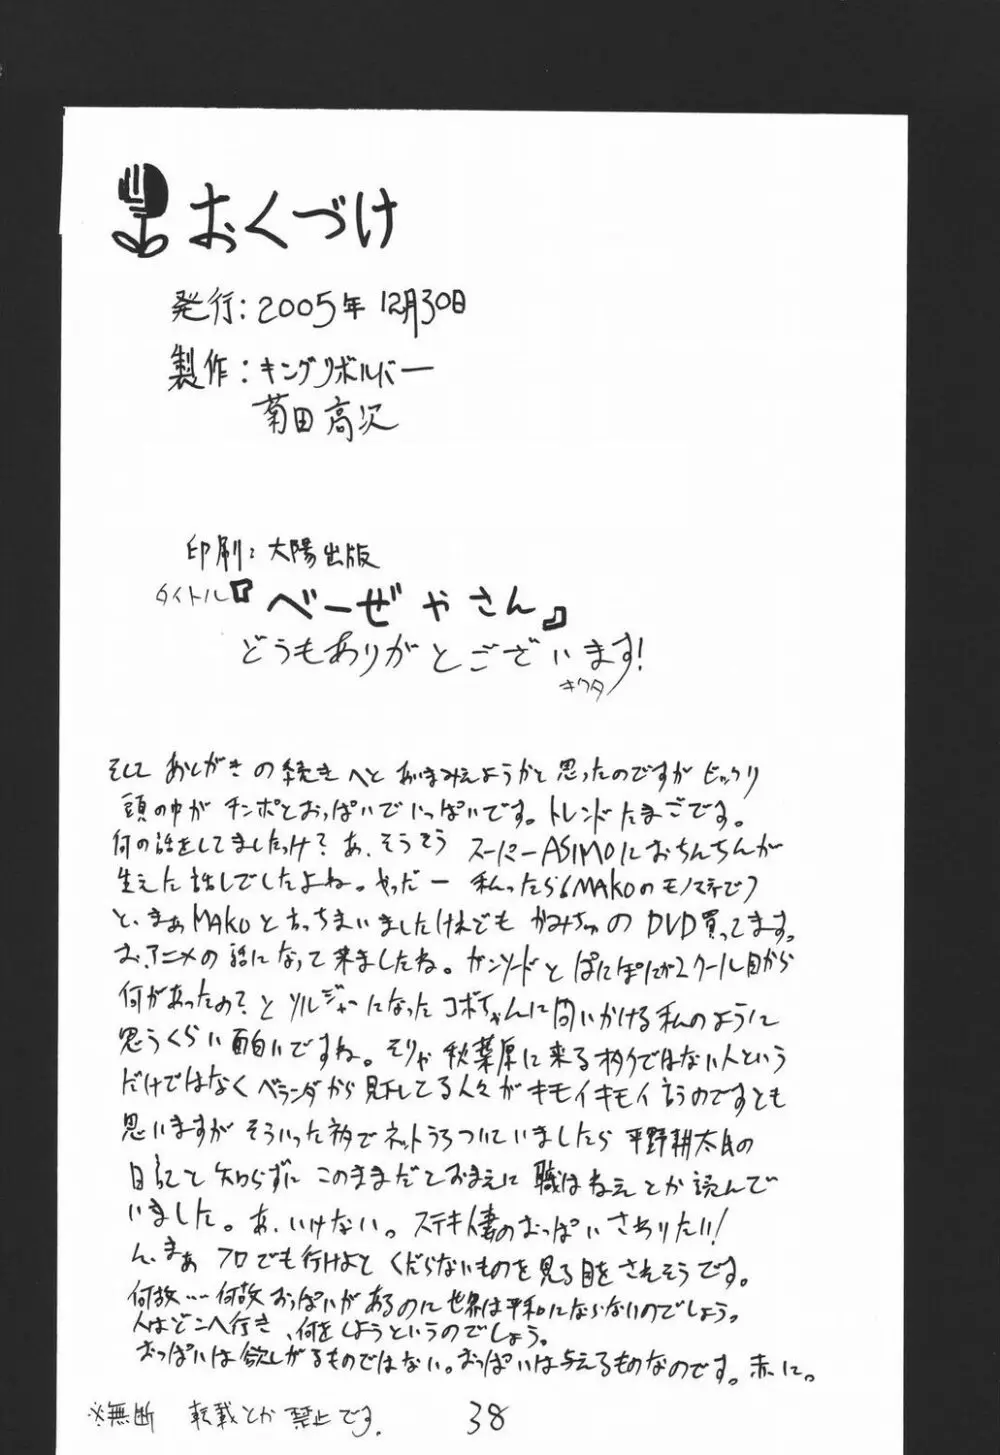 おくづけ
発行：2005年12月30日
製作：キングリボルバー
菊田高次
印刷：大陽出版
タイトル『べーぜやさん』
どうもありがとございます！
キクタ
そして あとがきの続きへと あいまみえようかと思ったのですが ビックリ
頭の中が チンポとおっぱいで いっぱいです。トレンドたまごです。
何の話をしてましたっけ？ あ、そうそう スーパーASIMOにおちんちんが
生えた話しでしたよね。やっだー 私ったら MAKOのモノマネで
と、まぁMAKOと言っちまいましたけれども かみちゅのDVD買ってます。
お、アニメの話になって来ましたね。ガンソードと ぱにぽにが2クール目から
何があったの？と ソルジャーになった コボちゃんに問いかける私のように
思うくらい面白いですね。そりゃ 秋葉原に来るオタクではない人という
だけではなく ベランダから見下してる人々が キモイキモイ言うのですとも
思いますが そういった訳でネットうろついていましたら 平野耕太氏の
日記と知らずに このままだとおまえに 職はねぇとか読んで
いました。あ、いけない。ステキ人妻のおっぱいさわりたい！
ん、まぁ プロでも行けよと くだらないものを見る目をされそうです。
何故…何故おっぱいがあるのに世界は平和にならないのでしょう。
人はどこへ行き、何をしようというのでしょう。
おっぱいは欲しがるものではない。おっぱいは与えるものなのです。赤に。
※無断 転載とか禁止です。
38